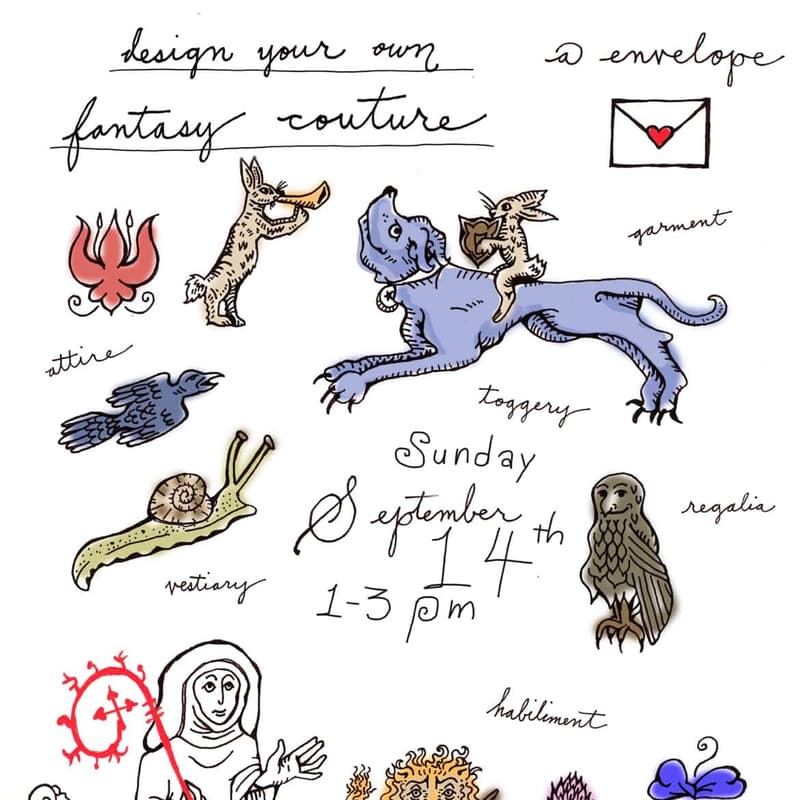 design your own
fantasy couture
@ envelope
garment
attire
toggery
Sunday
September
14th
1-3 pm
regalia
vestiary
habiliment